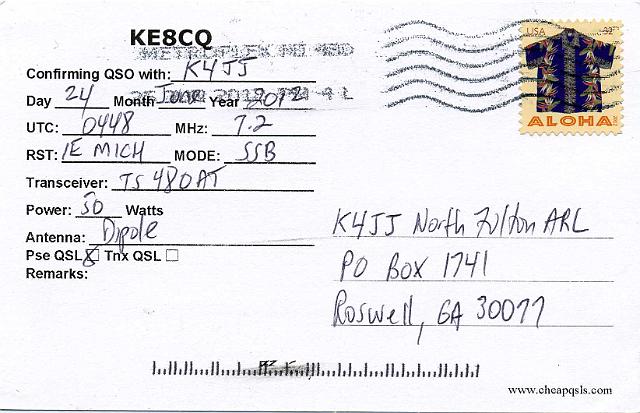 KE8CQ
METROPLEX MI 480
Confirming QSO with: K4JJ
Day 24 Month June Year 2012
UTC: 0448 MHz: 7.2
RST: 1E MICH MODE: SSB
Transceiver: TS 480AT
Power: 50 Watts
Antenna: Dipole
Pse QSL Tnx QSL
Remarks:
USA
ALOHA
K4JJ North Fulton ARL
PO Box 1741
Roswell, GA 30077
www.cheapqsls.com